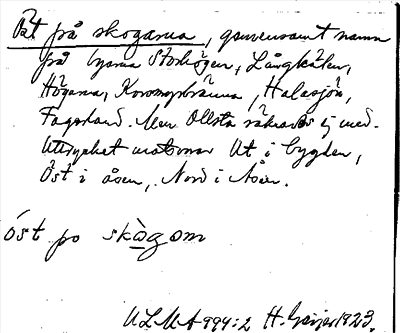 Öst på skogarna, gemensamt namn
på byarna Storhögen, Långkälen,
Högarna, Korsmyrbränna, Halasjön,
Fagerland. Men Ollsta räknades ej med.
Uttrycket motsvarar Ut i bygden,
Öst i åsen, Nord i Åsen.
öst po skògom
ULMA 999:2 H. Geijer 1923.